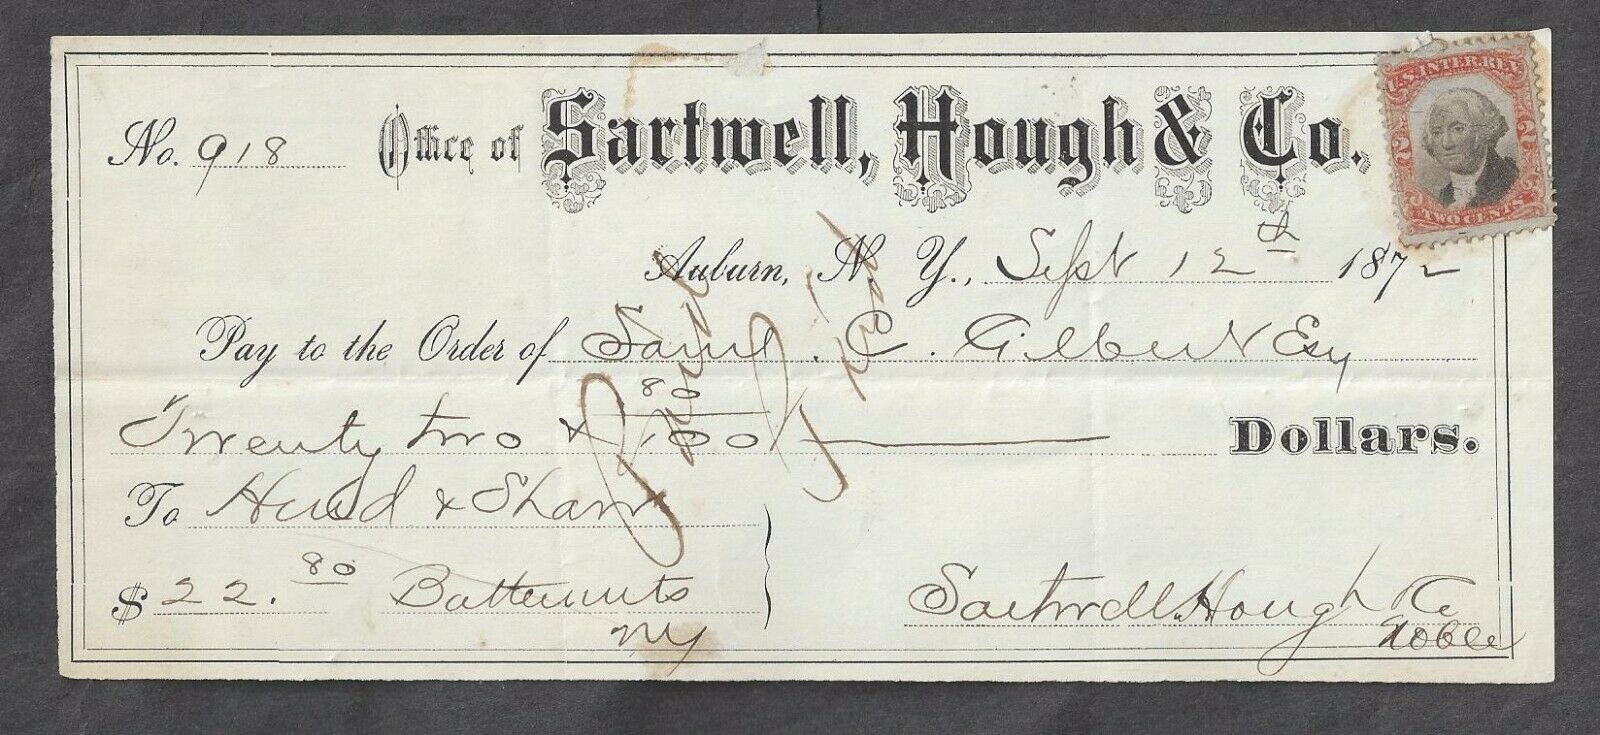 No. 918 Office of Sartwell, Hough & Co.
U.S. INTER. REV.
2 2
TWO CENTS
Auburn, N. Y., Sept 12th 1872
Pay to the Order of Saml. C. Gilbert Esq
Twenty two & 80/100 Dollars.
To Hurd & Shaw
$22.80 Butternuts
NY
Sartwell. Hough & Co